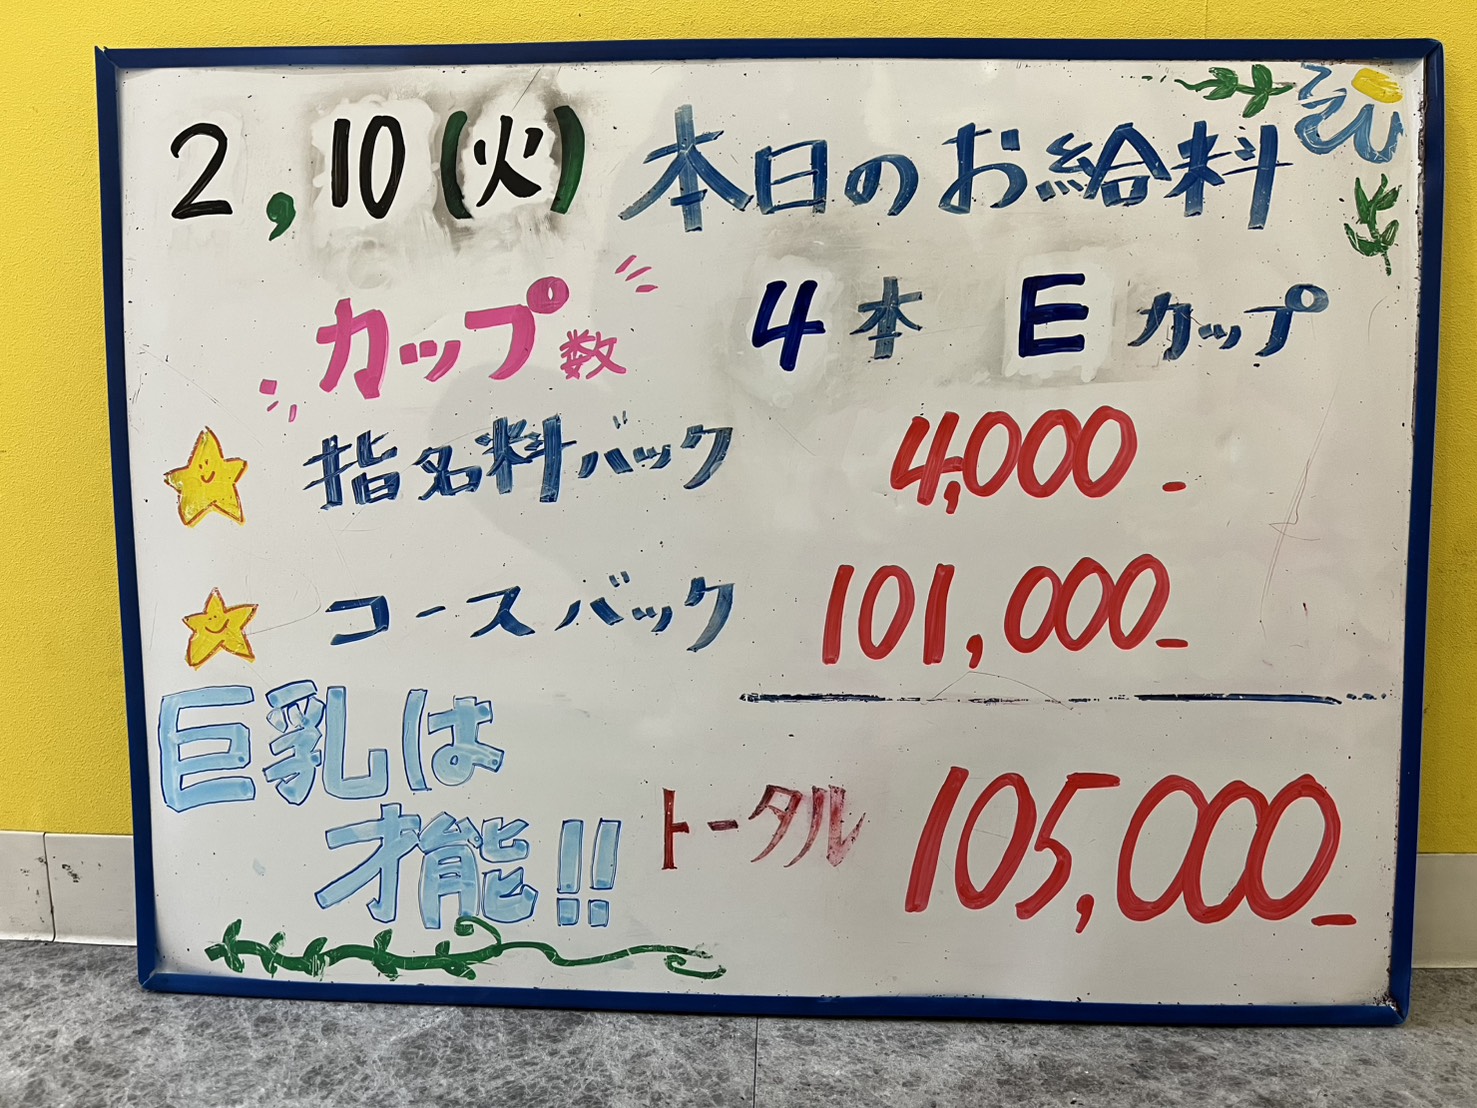 2,10(火) 本日のお給料
カップ数 4本 Eカップ
指名料バック 4,000-
コースバック 101,000-
巨乳は
才能!!
トータル 105,000-